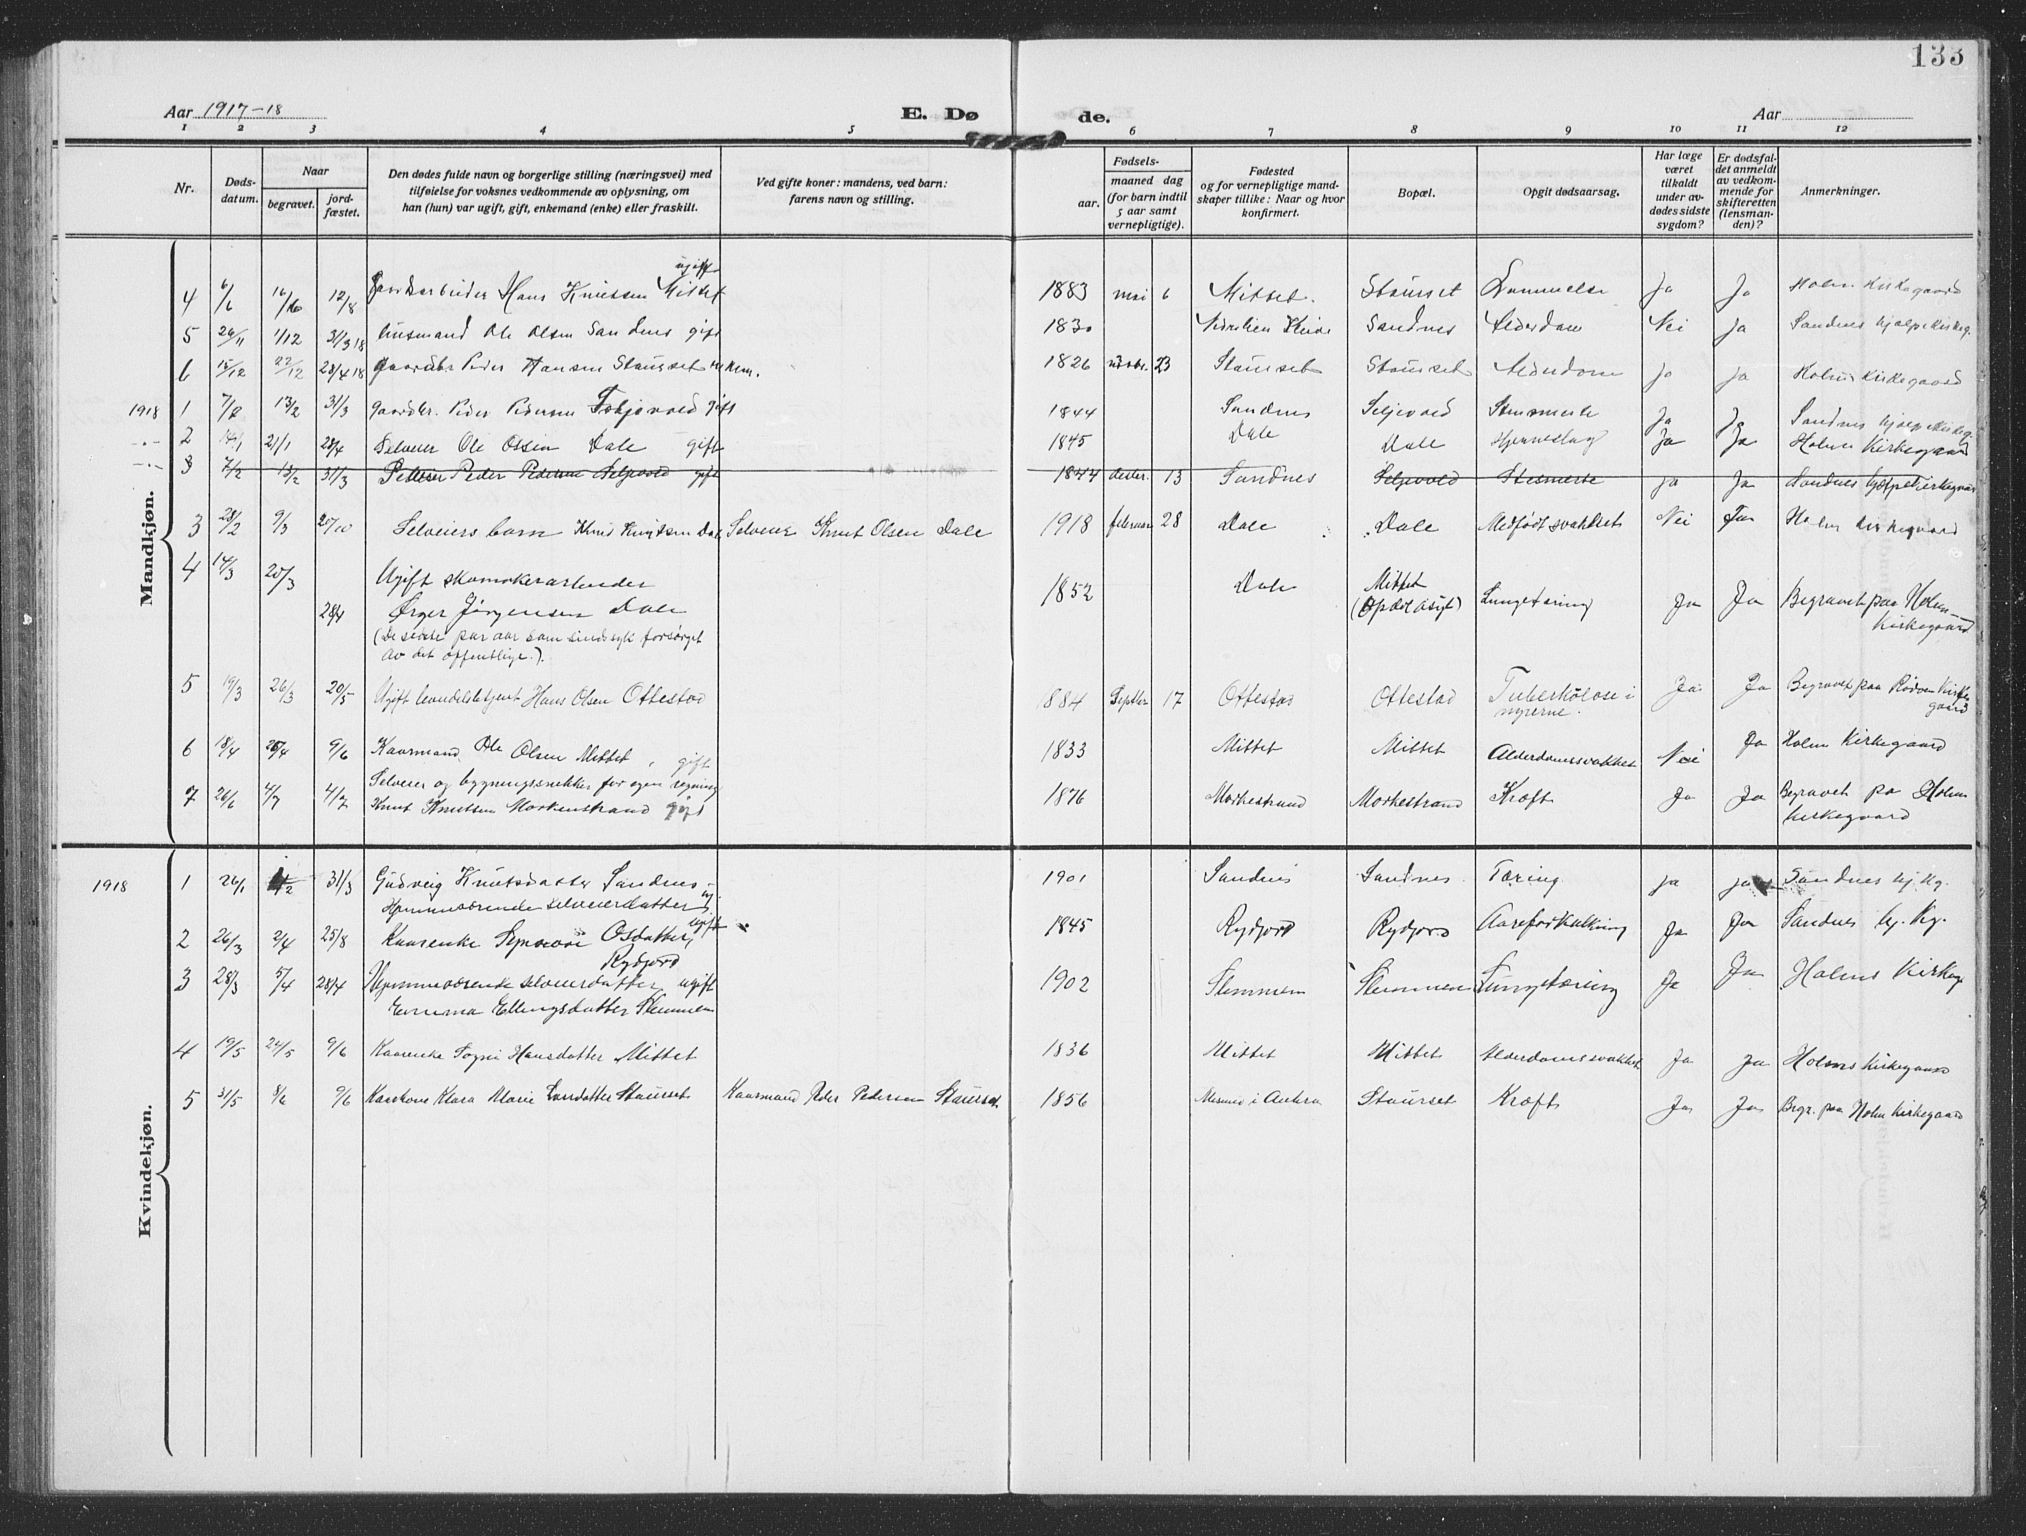 133
Aar 1917-18 E. Døde. Aar
1 2 3 4 5 6 7 8 9 10 11 12
Nr.
Døds-
datum.
Naar
begravet.
jord-
fæstet.
Den dødes fulde navn og borgerlige stilling (næringsvei) med
tilføielse for voksnes vedkommende av oplysning, om
han (hun) var ugift, gift, enkemand (enke) eller fraskilt.
Ved gifte koner: mandens, ved barn:
farens navn og stilling.
Fødsels-
aar.
maaned dag
(for barn indtil
5 aar samt
vernepligtige).
Fødested
og for vernepligtige mand-
skaper tillike: Naar og hvor
konfirmert.
Bopæl.
Opgit dødsaarsag.
Har læge
været
tilkaldt
under av-
dødes sidste
sygdom?
Er dødsfal-
det anmeldt
av vedkom-
mende for
skifteretten
(lensman-
den)?
Anmerkninger.
Mandkjøn.
ugift
4 6/6 12/8 Gaardarbeider Hans Knutsen Mittet 1883 mai 6 Mittet. Staurset Ja Ja Holm Kirkegaard
5 26/11 1/12 31/3 18 Husmand Ole Olsen Sandnes gift 1830 Sandnes Alderdom Nei Ja Sandnes hjælpekirkeg.
6 15/12 22/12 28/4 18 Gaardbr. Peder Hansen Staurset enkem. 1826 23 Staurset Staurset Alderdom Ja Ja Holm Kirkegaard
1918 1 7/2 13/2 31/3 Gaardbr. Peder Pedersen gift 1844 Sandnes Seljevold Ja Ja Sandnes hjælpekirkeg.
-"- 2 21/1 28/4 Selveier Ole Olsen Dale gift 1845 Dale Dale Hjerneslag Ja Ja Holm Kirkegaard
-"- 3 7/2 13/2 31/3 Selveier Peder Pedersen Seljevold gift 1844 decbr. 13 Sandnes Seljevold Ja Ja Sandnes hjælpekirkegaard
3 28/2 9/3 20/10 Selveiers barn Knud Knutsen Dale Selveier Knut Olsen Dale 1918 februar 28 Dale Dale Medfødt svakhet Nei Ja Holm Kirkegaard
4 14/3 20/3 Ugift skomakerarbeider
28/4 Ørger Jørgensen Dale 1852 Dale Mittet
(Opdøl asyl) Lungetæring Ja Ja Begravet paa Holm
Kirkegaard
(De sidste par aar som sindssyk forsørget
av det offentlige.).
5 19/3 26/3 20/5 Ugift handelsbetjent Hans Olsen Ottestad 1884 Septbr 17 Ottestad Ottestad Tuberkulose i
nyrerne. Ja Ja Begravet paa Rødven Kirke-
gaard
6 18/4 26/4 9/6 Kaarmand Ole Olsen Mittet, gift 1833 Mittet Mittet Alderdomssvakhet Nei Ja Holm Kirkegaard
7 26/6 4/7 4/7 Selveier og bygningssnekker for egen regning
Knut Knutsen Morkenstrand gift 1876 Morkestrand Morkestrand Kræft Ja Ja Begravet pa Holm
Kirkegaard
Kvindekjøn.
1918 1 26/1 31/3 Gudveig Knutsdatter Sandnes ug.
Hjemmeværende selveierdatter 1901 Sandnes Sandnes Tæring. Ja Ja Sandnes hj. kg.
2 26/3 2/4 25/8 Kaarenke Osdatter, ugift
Rydjord 1845 Rydjord Rydjord Aareforkalkning Ja Ja Sandnes hj. Kg.
3 28/3 5/4 28/4 Hjemmeværende selveierdatter, ugift
Emma Ellingsdatter Stemmen 1902 Stemmen Stemmen Lungetæring Ja Ja Holms Kirkeg
4 19/5 24/5 9/6 Kaarenke Hansdatter Mittet 1836 Mittet Mittet Alderdomssvakhet Ja Ja Holms Kirkegaard
5 31/5 8/6 9/6 Kaarkone Klara Marie Larsdatter Staurset Kaarmand Peder Pedersen Staurset 1856 Staurset Kræft Ja Ja Begr. paa Holm Kirkegaard